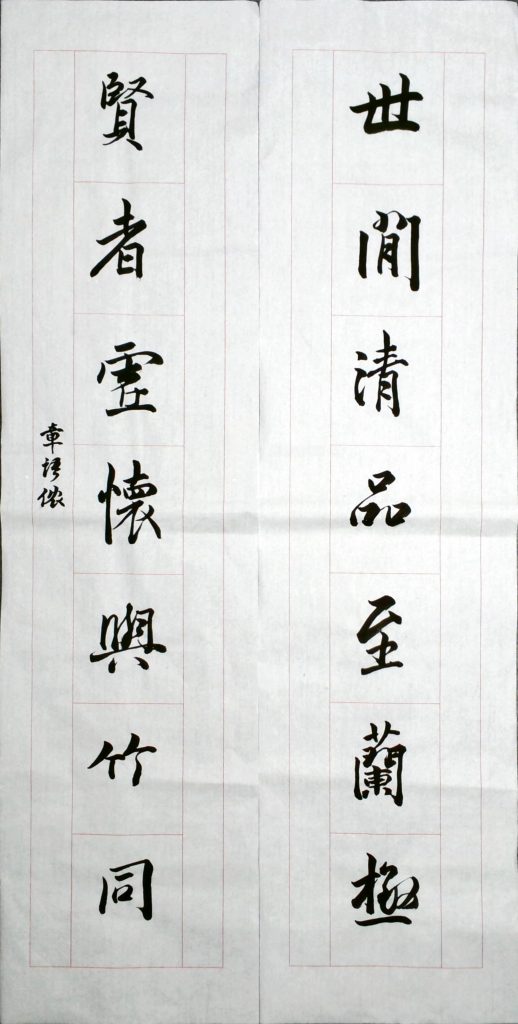 世間清品至蘭極
賢者虛懷與竹同
章語儂